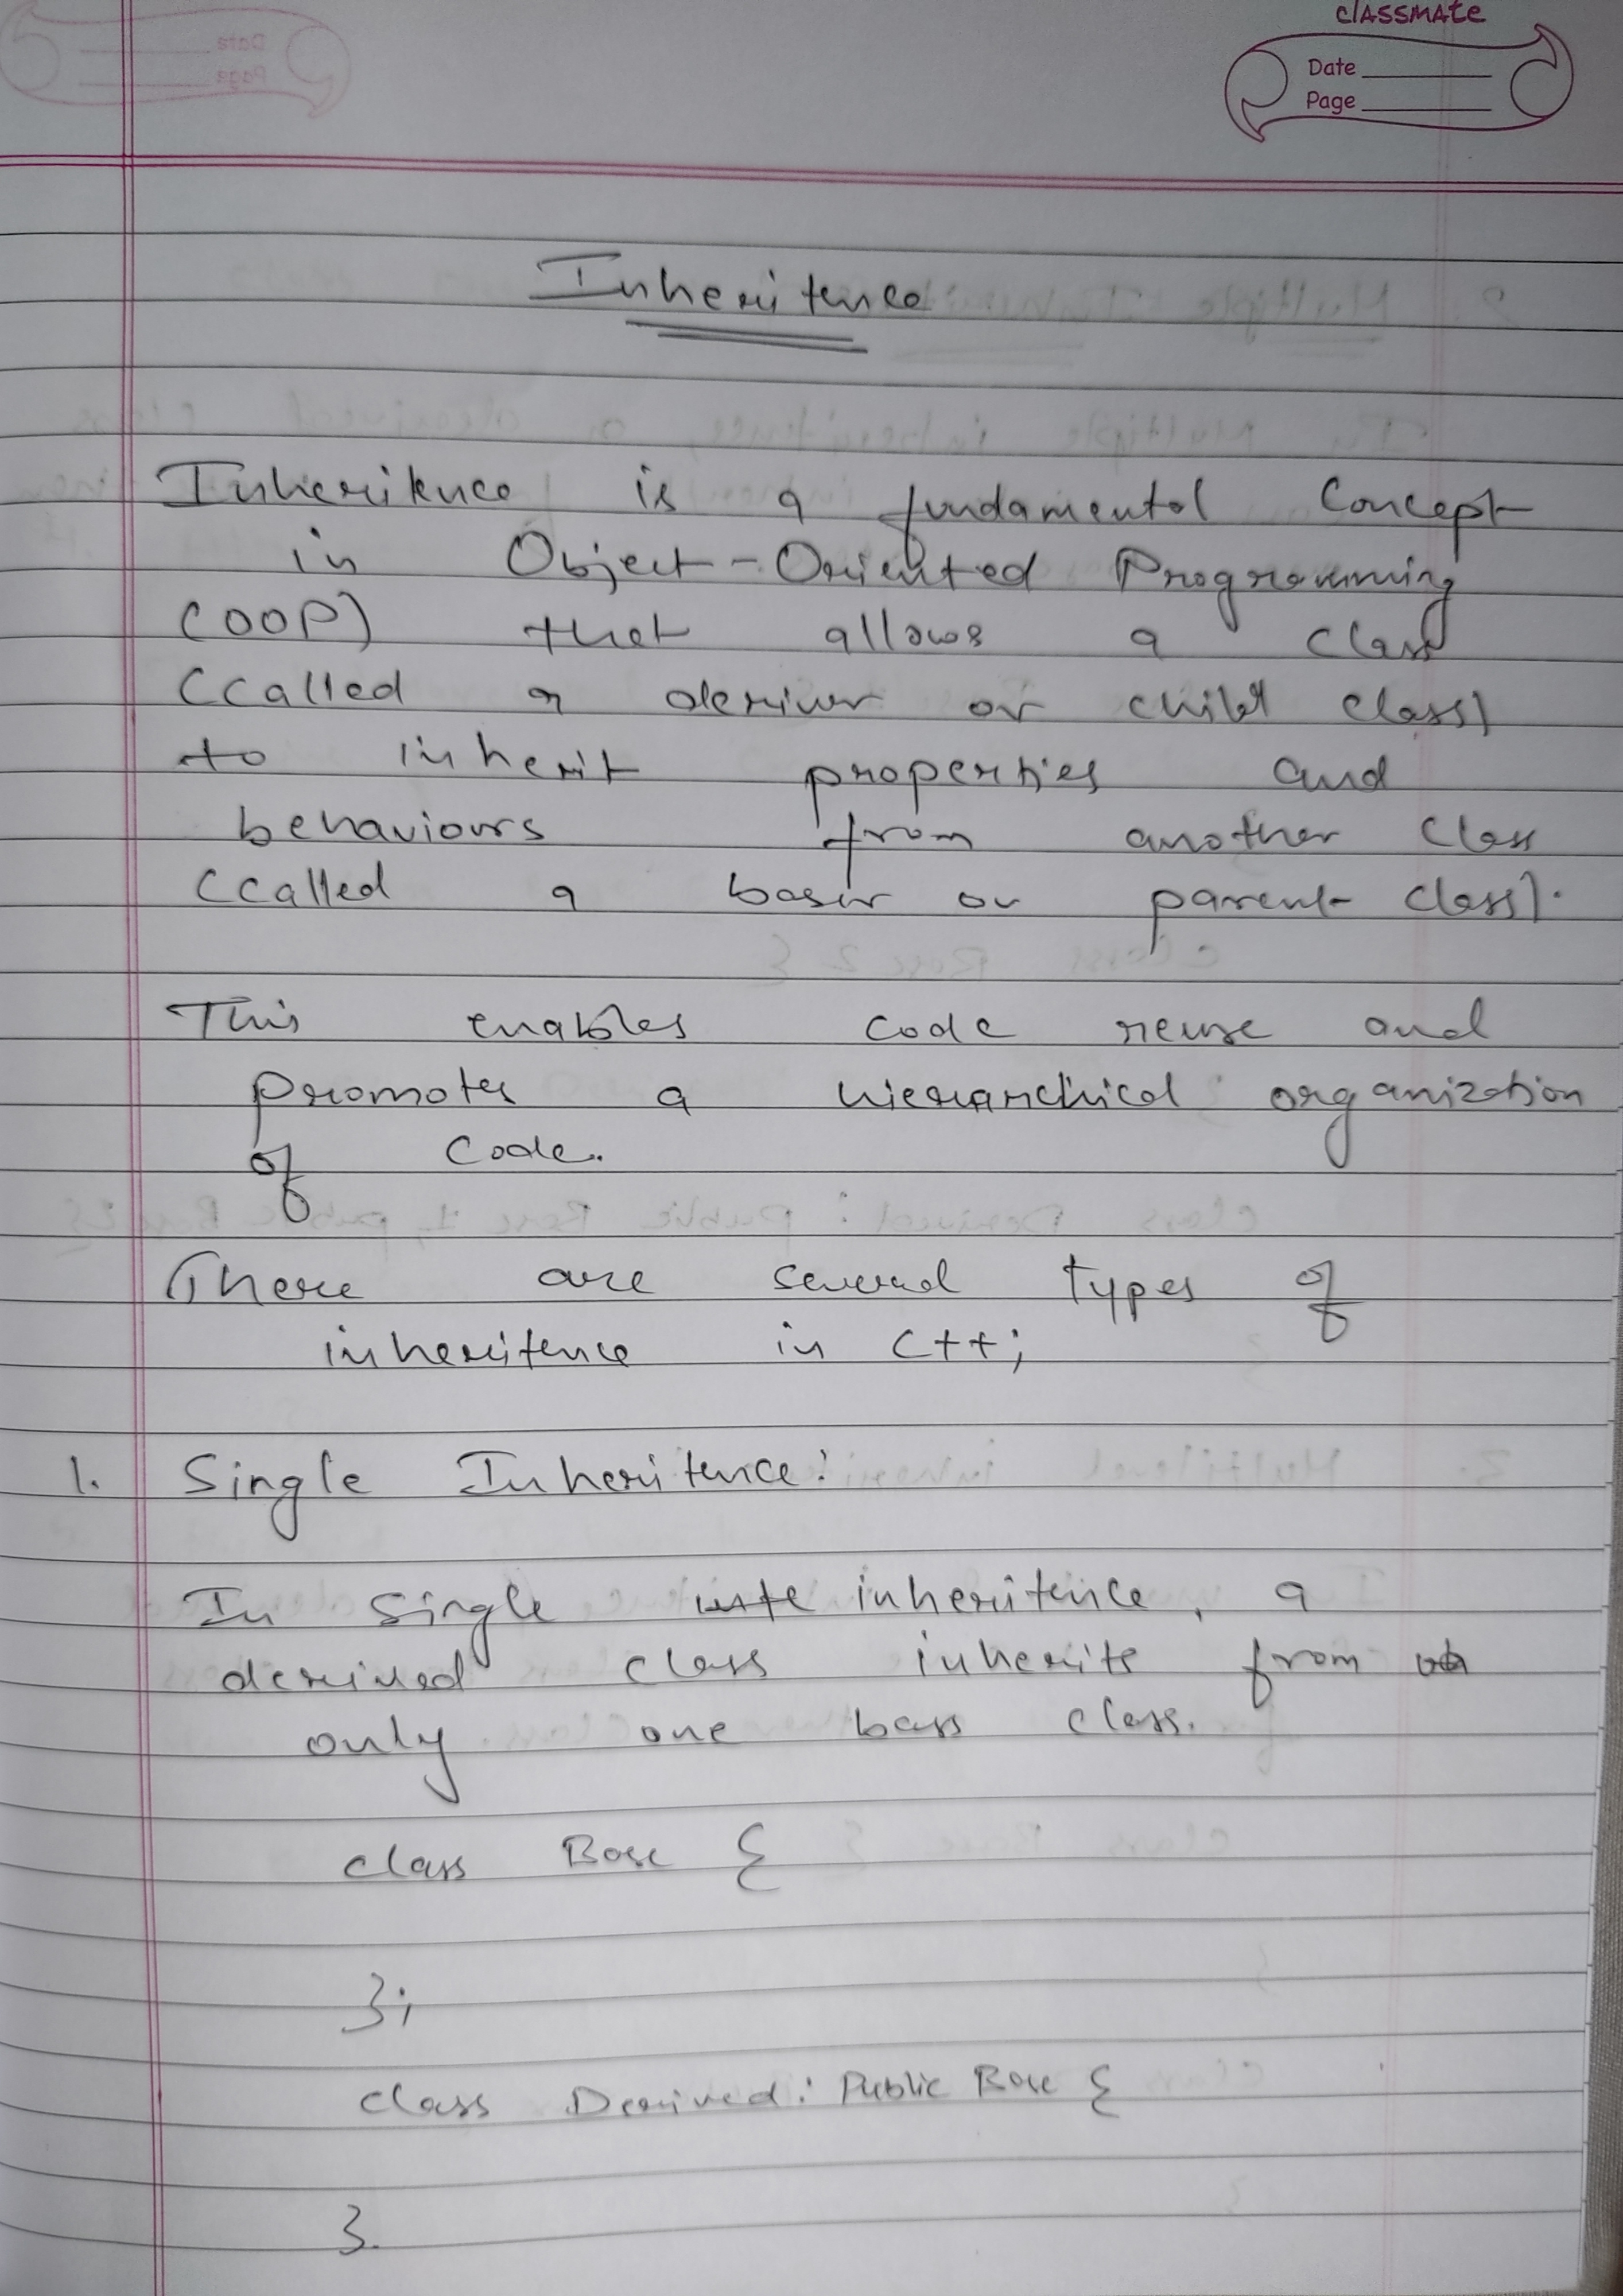 classmate
Date
Page
Inheritence
Inheritence is a fundamental Concept
in Object-Oriented Programming
(OOP) that allows a class
(called a deriver or child class)
to inherit properties and
behaviours from another class
(called a basic or parent class).
This enables code reuse and
promotes a hierarchical organization
of code.
There are several types of
inheritence in C++;
1. Single Inheritence:
In single inheritence, a
derived class inherits from
only one bass class.
class Base {
};
class Derived: Public Base {
}.